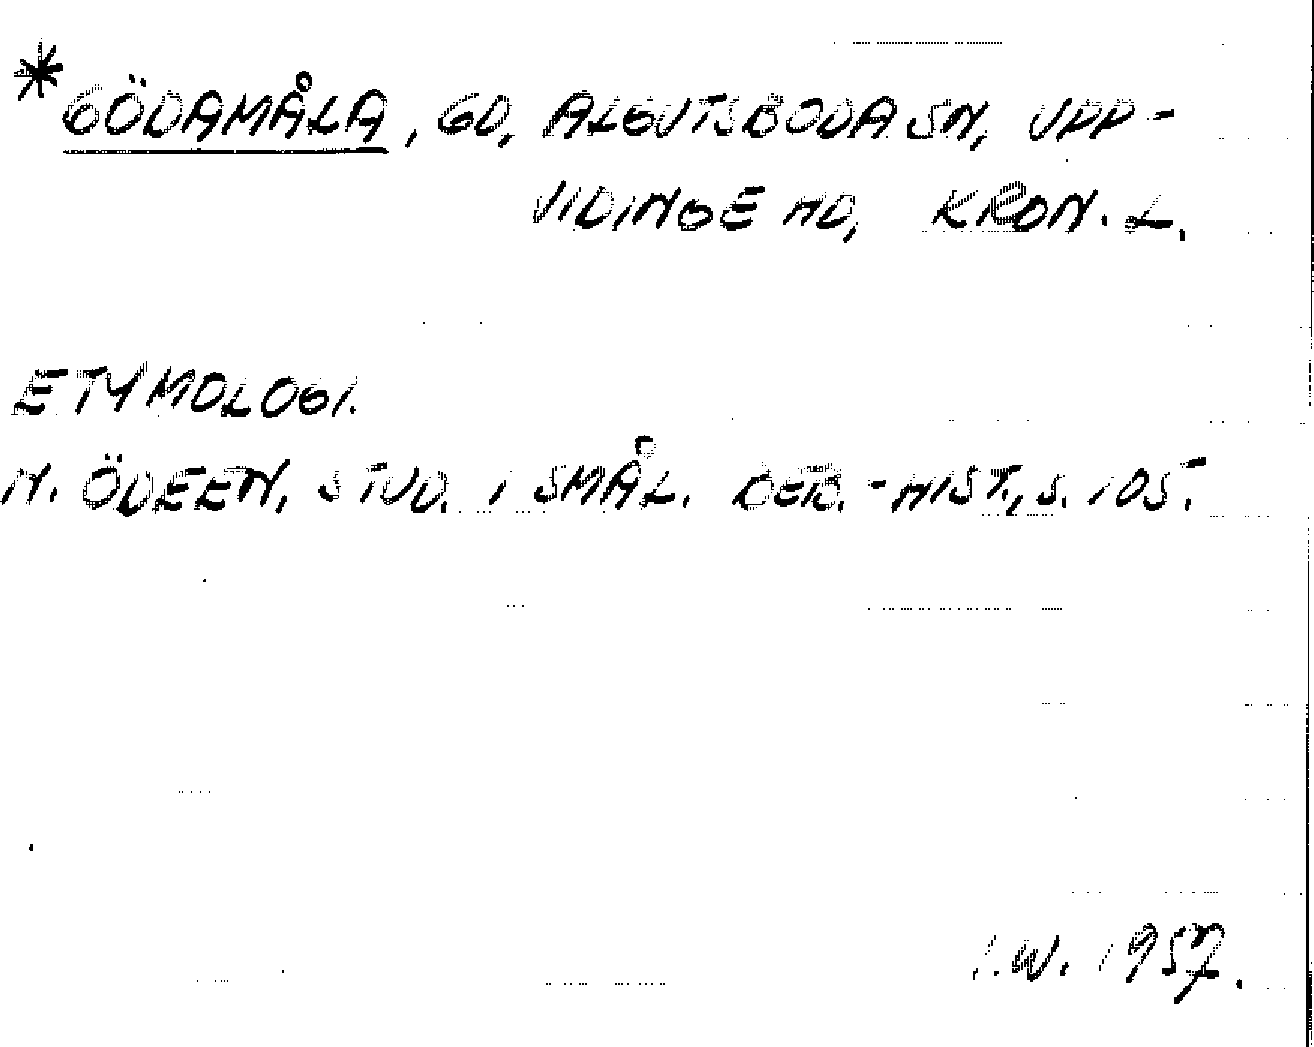 *GÖDAMÅLA, GD, ALGUTSBODA SN, UPP-
VIDINGE HD, KRON. L.
ETYMOLOGI.
N. ÖDEEN, STUD. I SMÅL. BEB.-HIST., S. 105.
I.W. 1957.